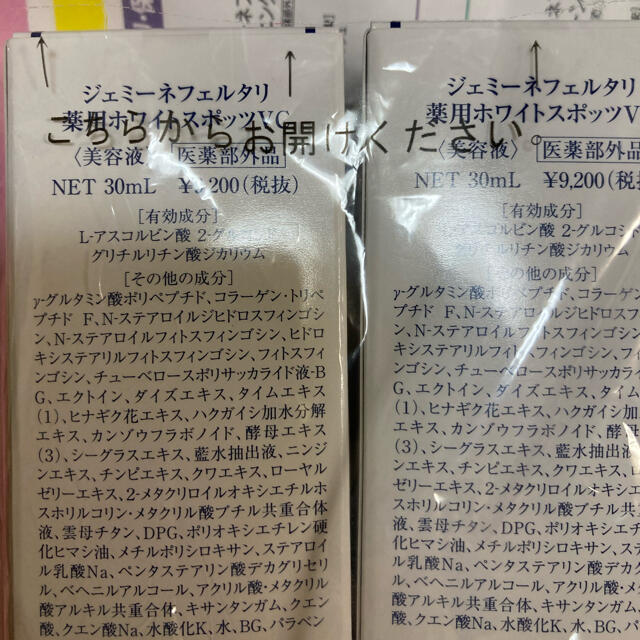 こちらからお開けください。
ジェミーネフェルタリ
薬用ホワイトスポッツVC
〈美容液〉 医薬部外品
NET 30mL ¥9,200(税抜)
[有効成分]
L-アスコルビン酸 2-グルコシド
グリチルリチン酸ジカリウム
[その他の成分]
γ-グルタミン酸ポリペプチド、コラーゲン・トリペ
プチド F、N-ステアロイルジヒドロスフィンゴシ
ン、N-ステアロイルフィトスフィンゴシン、ヒドロ
キシステアリルフィトスフィンゴシン、フィトスフィ
ンゴシン、チューベロースポリサッカライド液-B
G、エクトイン、ダイズエキス、タイムエキス
(1)、ヒナギク花エキス、ハクガイシ加水分解
エキス、カンゾウフラボノイド、酵母エキス
(3)、シーグラスエキス、藍水抽出液、ニンジ
ンエキス、チンピエキス、クワエキス、ローヤル
ゼリーエキス、2-メタクリロイルオキシエチルホス
スホリルコリン・メタクリル酸ブチル共重合体
液、雲母チタン、DPG、ポリオキシエチレン硬
化ヒマシ油、メチルポリシロキサン、ステアロイ
ル乳酸Na、ペンタステアリン酸デカグリセリ
ル、ベヘニルアルコール、アクリル酸・メタクリル
酸アルキル共重合体、キサンタンガム、クエン
酸、クエン酸Na、水酸化K、水、BG、パラベン
ジェミーネフェルタリ
薬用ホワイトスポッツV
〈美容液〉 医薬部外品
NET 30mL ¥9,200(税
[有効成分]
L-アスコルビン酸 2-グルコシ
グリチルリチン酸ジカリウム
[その他の成分]
γ-グルタミン酸ポリペプチド、コラーゲン
プチド F、N-ステアロイルジヒドロスフ
ン、N-ステアロイルフィトスフィンゴシン
キシステアリルフィトスフィンゴシン、フ
ンゴシン、チューベロースポリサッカライ
G、エクトイン、ダイズエキス、タイ
(1)、ヒナギク花エキス、ハクガイシ
エキス、カンゾウフラボノイド、酵
(3)、シーグラスエキス、藍水抽出
ンエキス、チンピエキス、クワエキス、ロ
ゼリーエキス、2-メタクリロイルオキシ
スホリルコリン・メタクリル酸ブチル
液、雲母チタン、DPG、ポリオキシ
化ヒマシ油、メチルポリシロキサン
ル乳酸Na、ペンタステアリン酸
ル、ベヘニルアルコール、アクリル酸
酸アルキル共重合体、キサンタンガ
酸、クエン酸Na、水酸化K、水、BG